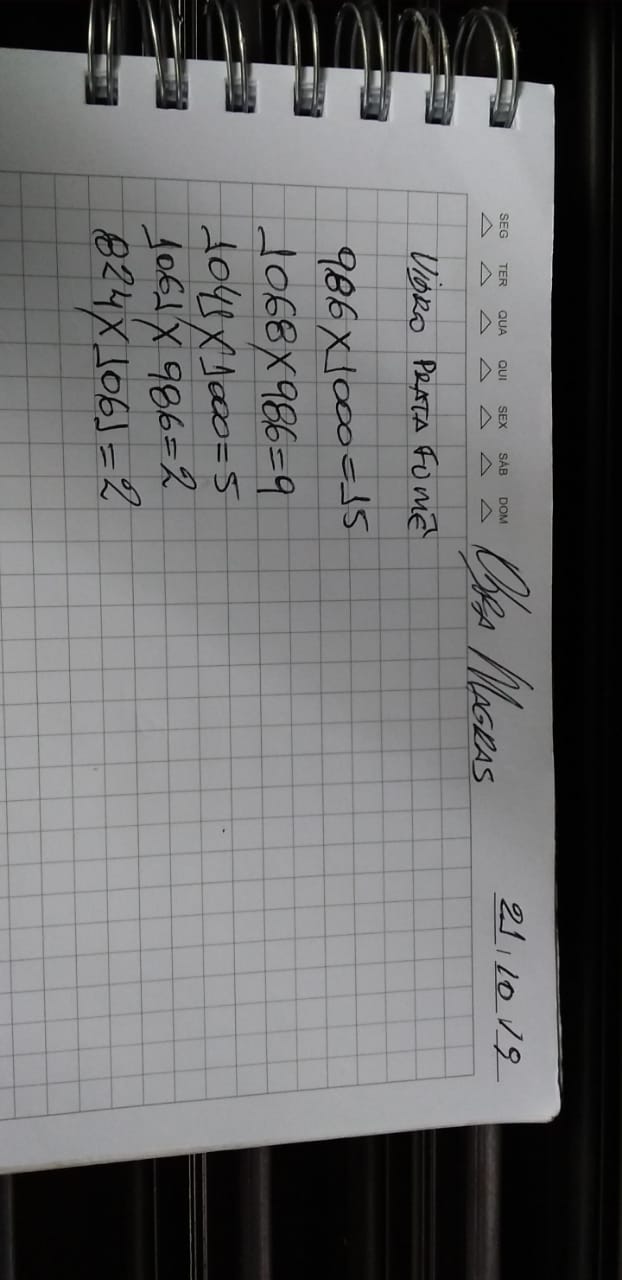 SEG TER QUA QUI SEX SÁB DOM
OBRA MAGRAS 21 10 19
VIDRO PRATA FUMÊ
986 X 1000 = 15
1068 X 986 = 9
1041 X 1000 = 5
1061 X 986 = 2
824 X 1061 = 2